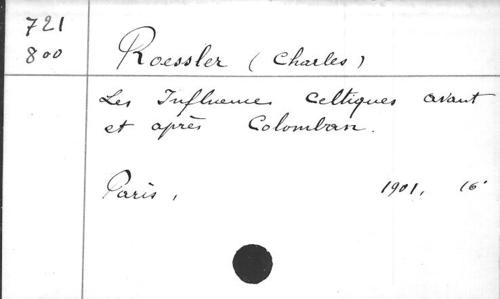 721
800
Roessler (Charles)
Les Influences Celtiques avant
et après Colomban.
Paris, 1901, 16°